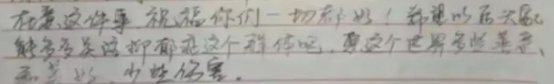 在意这件事，祝福你们一切都好！希望以后大家
能多多关注抑郁症这个群体吧，愿这个世界多些美意、
多些美好，少些伤害。